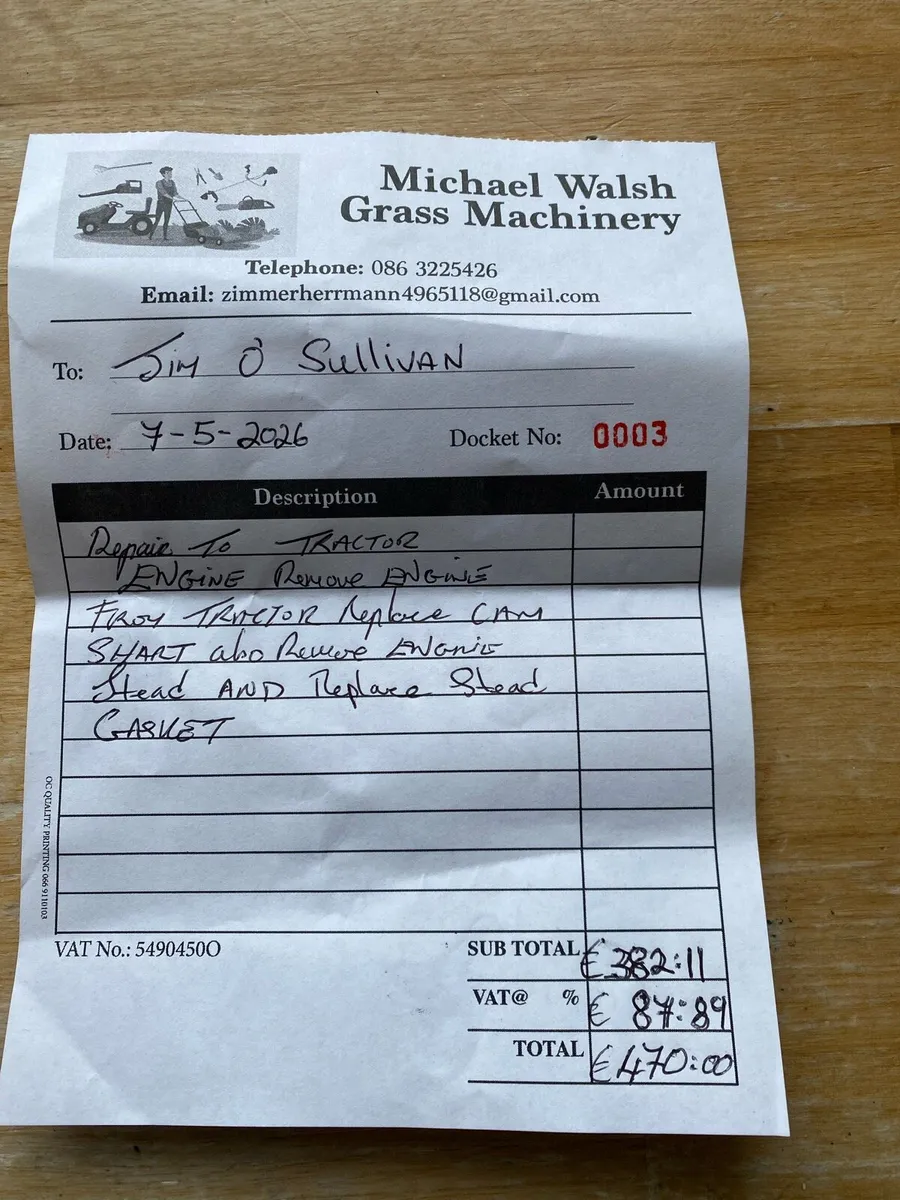 Michael Walsh
Grass Machinery
Telephone: 086 3225426
Email: zimmerherrmann4965118@gmail.com
To: Jim O' Sullivan
Date: 7-5-2026
Docket No: 0003
Description Amount
Repair To TRACTOR
ENGINE Remove ENGINE
From TRACTOR Replace CAM
SHART also Remove ENGNIE
Head AND Replace Head
GASKET
OC QUALITY PRINTING 066 9110103
VAT No.: 5490450O
SUB TOTAL €382:11
VAT@ % € 87:89
TOTAL €470:00